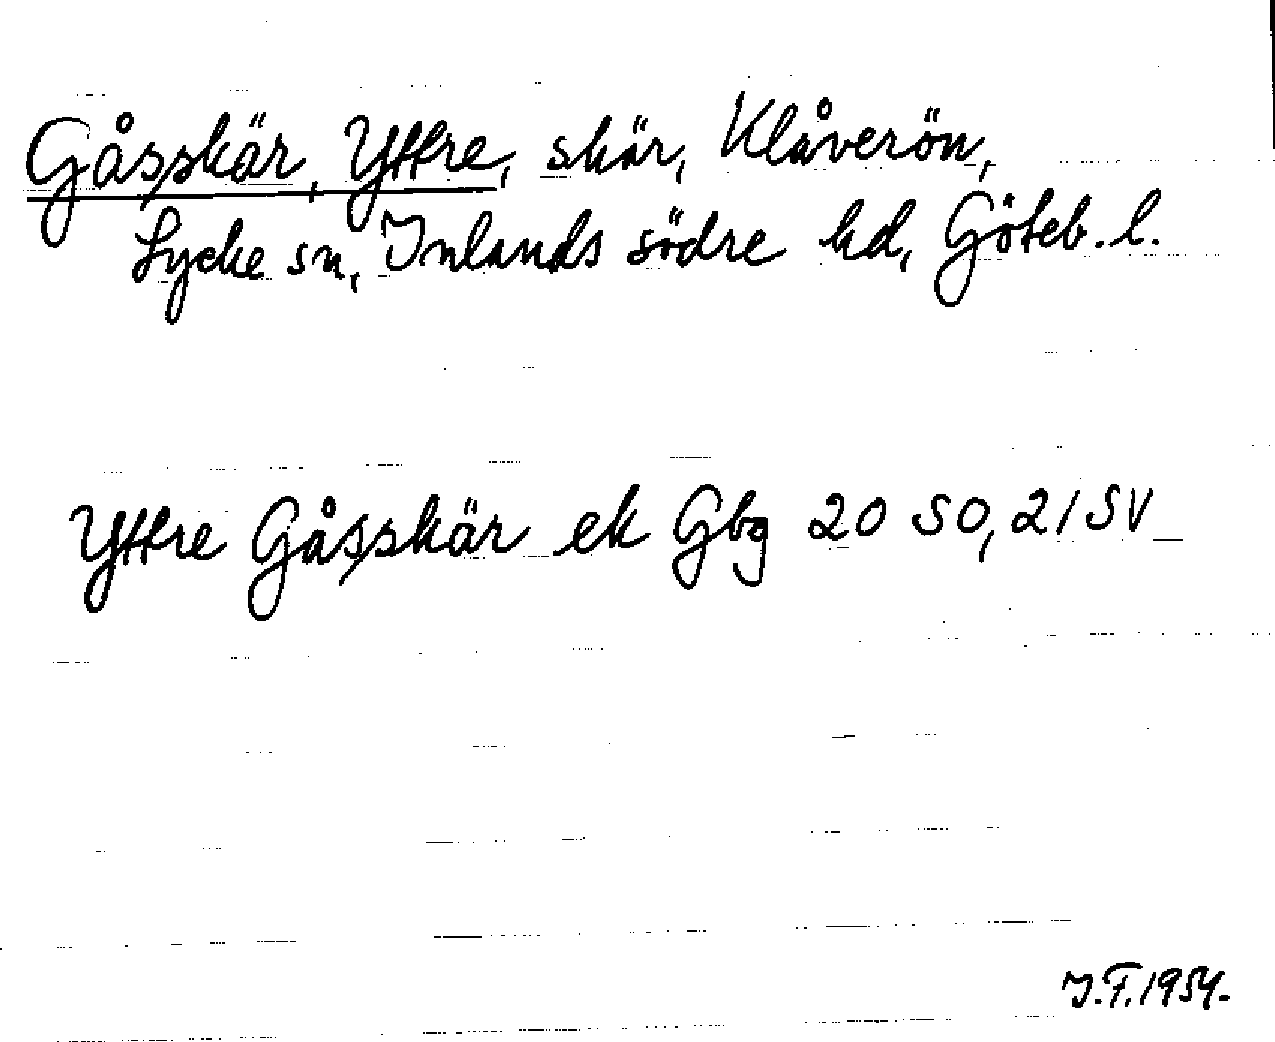 Gåsskär, Yttre, skär, Klåverön,
Lycke sn, Inlands södre hd, Göteb. l.
Yttre Gåsskär ek Gbg 20 SO, 21 SV
I.F. 1954.